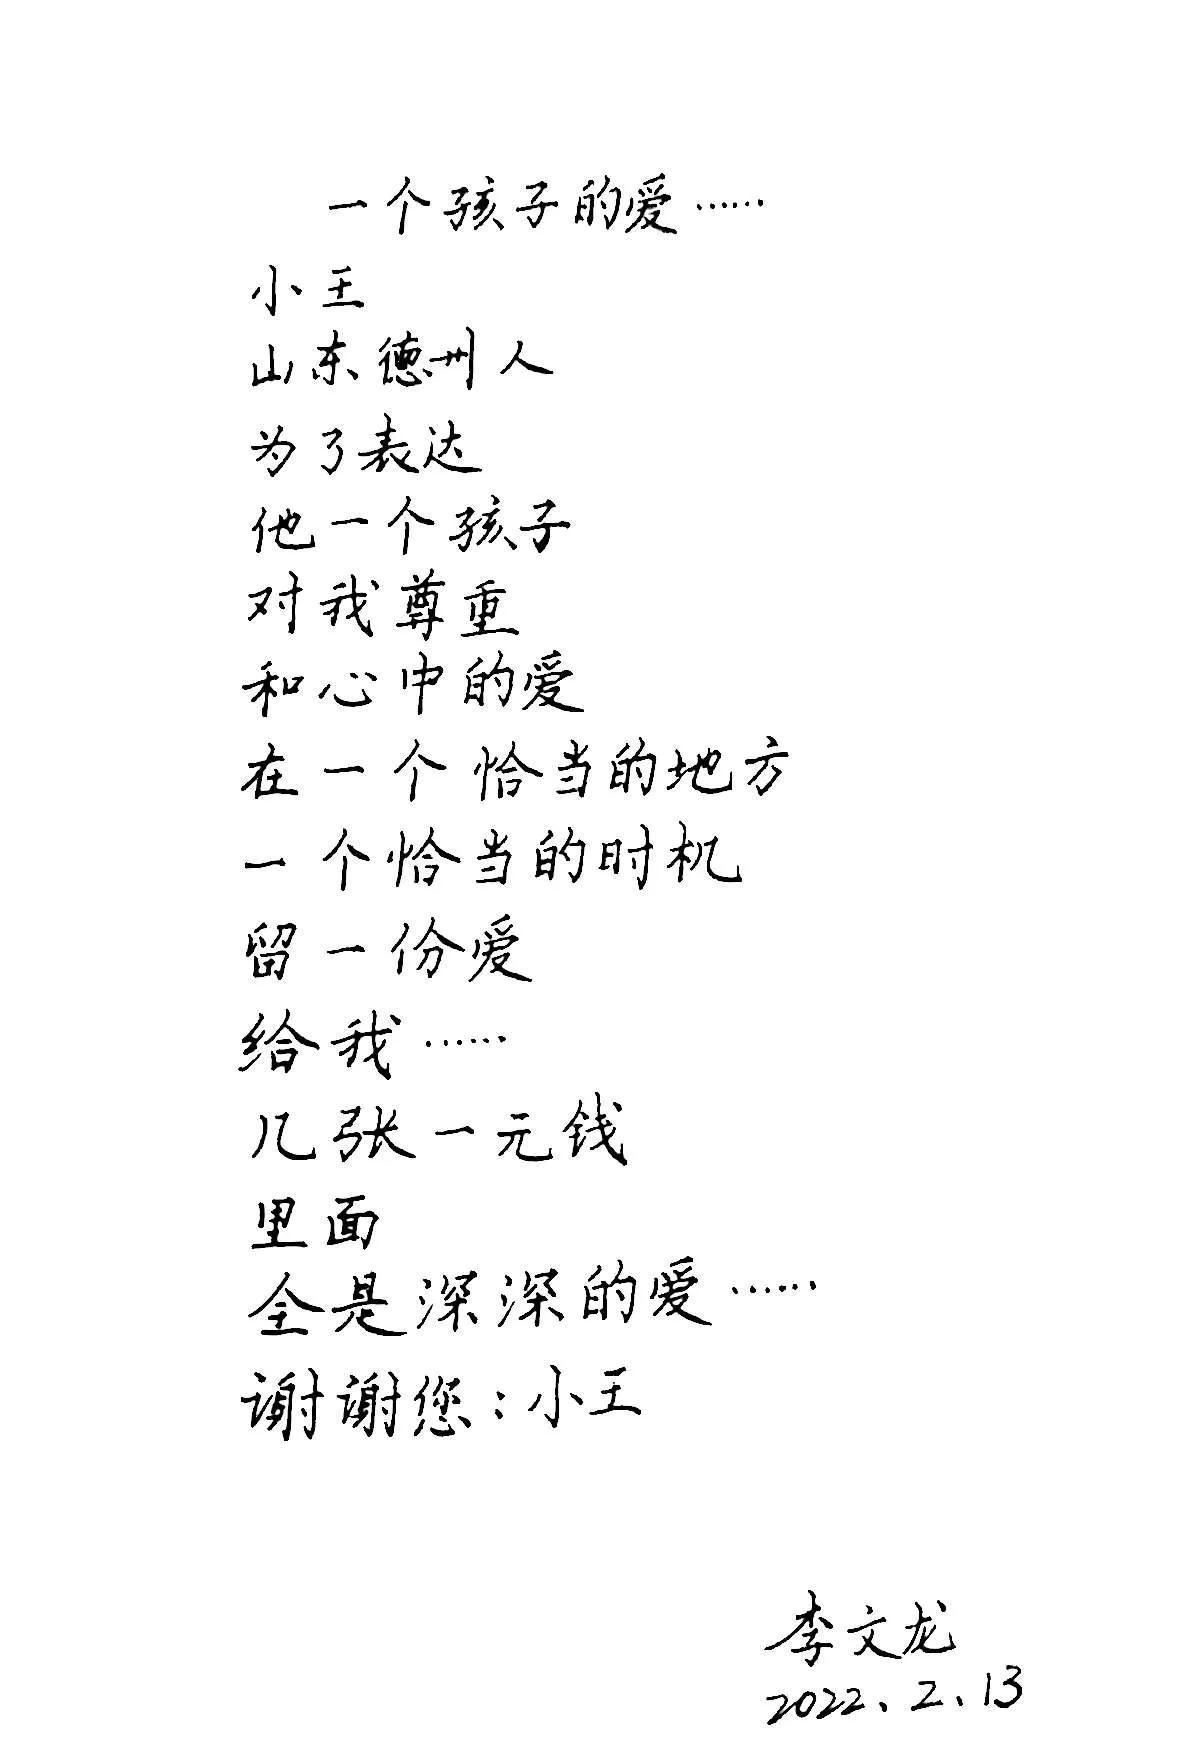 一个孩子的爱……
小王
山东德州人
为了表达
他一个孩子
对我尊重
和心中的爱
在一个恰当的地方
一个恰当的时机
留一份爱
给我……
几张一元钱
里面
全是深深的爱……
谢谢您:小王
李文龙
2022.2.13